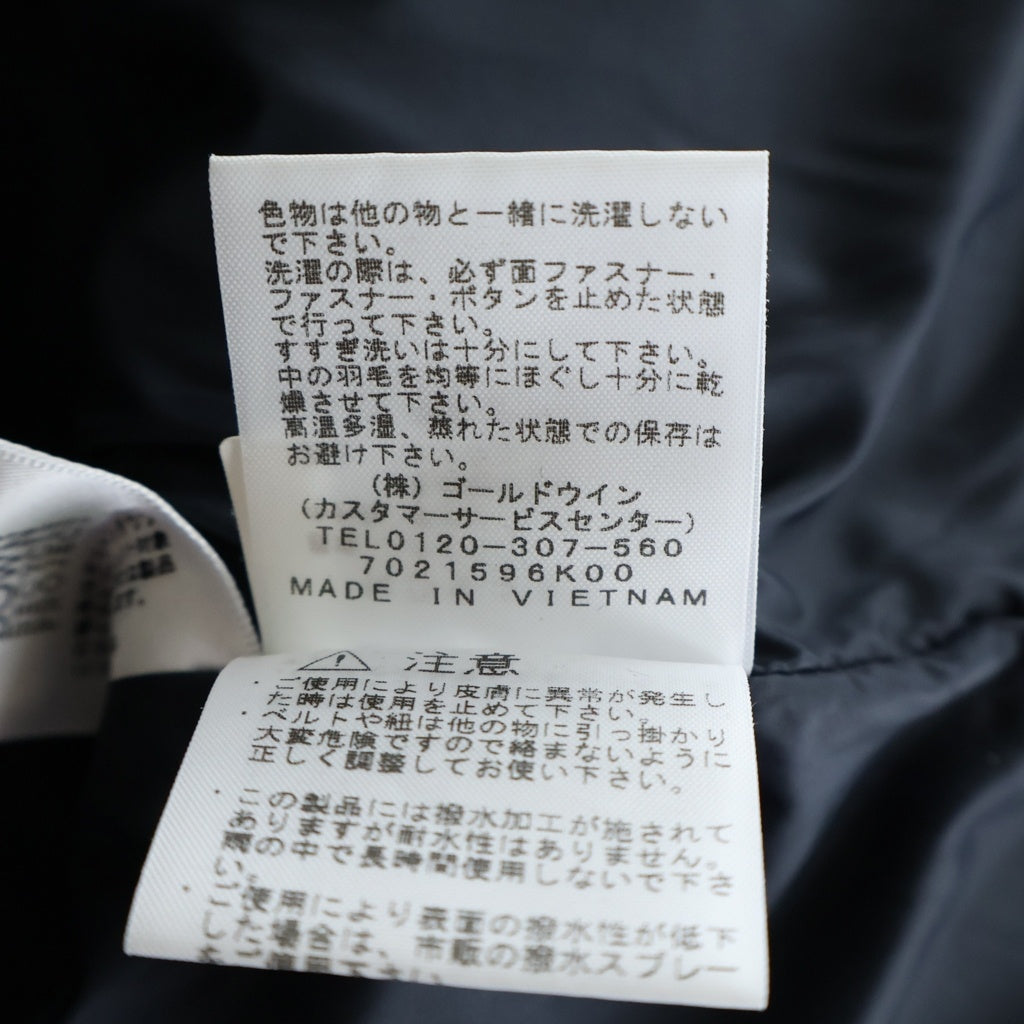 色物は他の物と一緒に洗濯しない
で下さい。
洗濯の際は、必ず面ファスナー・
ファスナー・ボタンを止めた状態
で行って下さい。
すすぎ洗いは十分にして下さい。
中の羽毛を均等にほぐし十分に乾
燥させて下さい。
高温多湿、蒸れた状態での保存は
お避け下さい。
(株)ゴールドウイン
(カスタマーサービスセンター)
TEL0120-307-560
7021596K00
MADE IN VIETNAM
⚠ 注意
・ご使用により皮膚に異常が発生し
た時は使用を止めて下さい。
・ベルトや紐は他の物に引っ掛かり
大変危険ですので絡まないように
正しく調整してお使い下さい。
・この製品には撥水加工が施されて
ありますが耐水性はありません。
雨の中で長時間使用しないで下さ
い。
・ご使用により表面の撥水性が低下
した場合は、市販の撥水スプレー